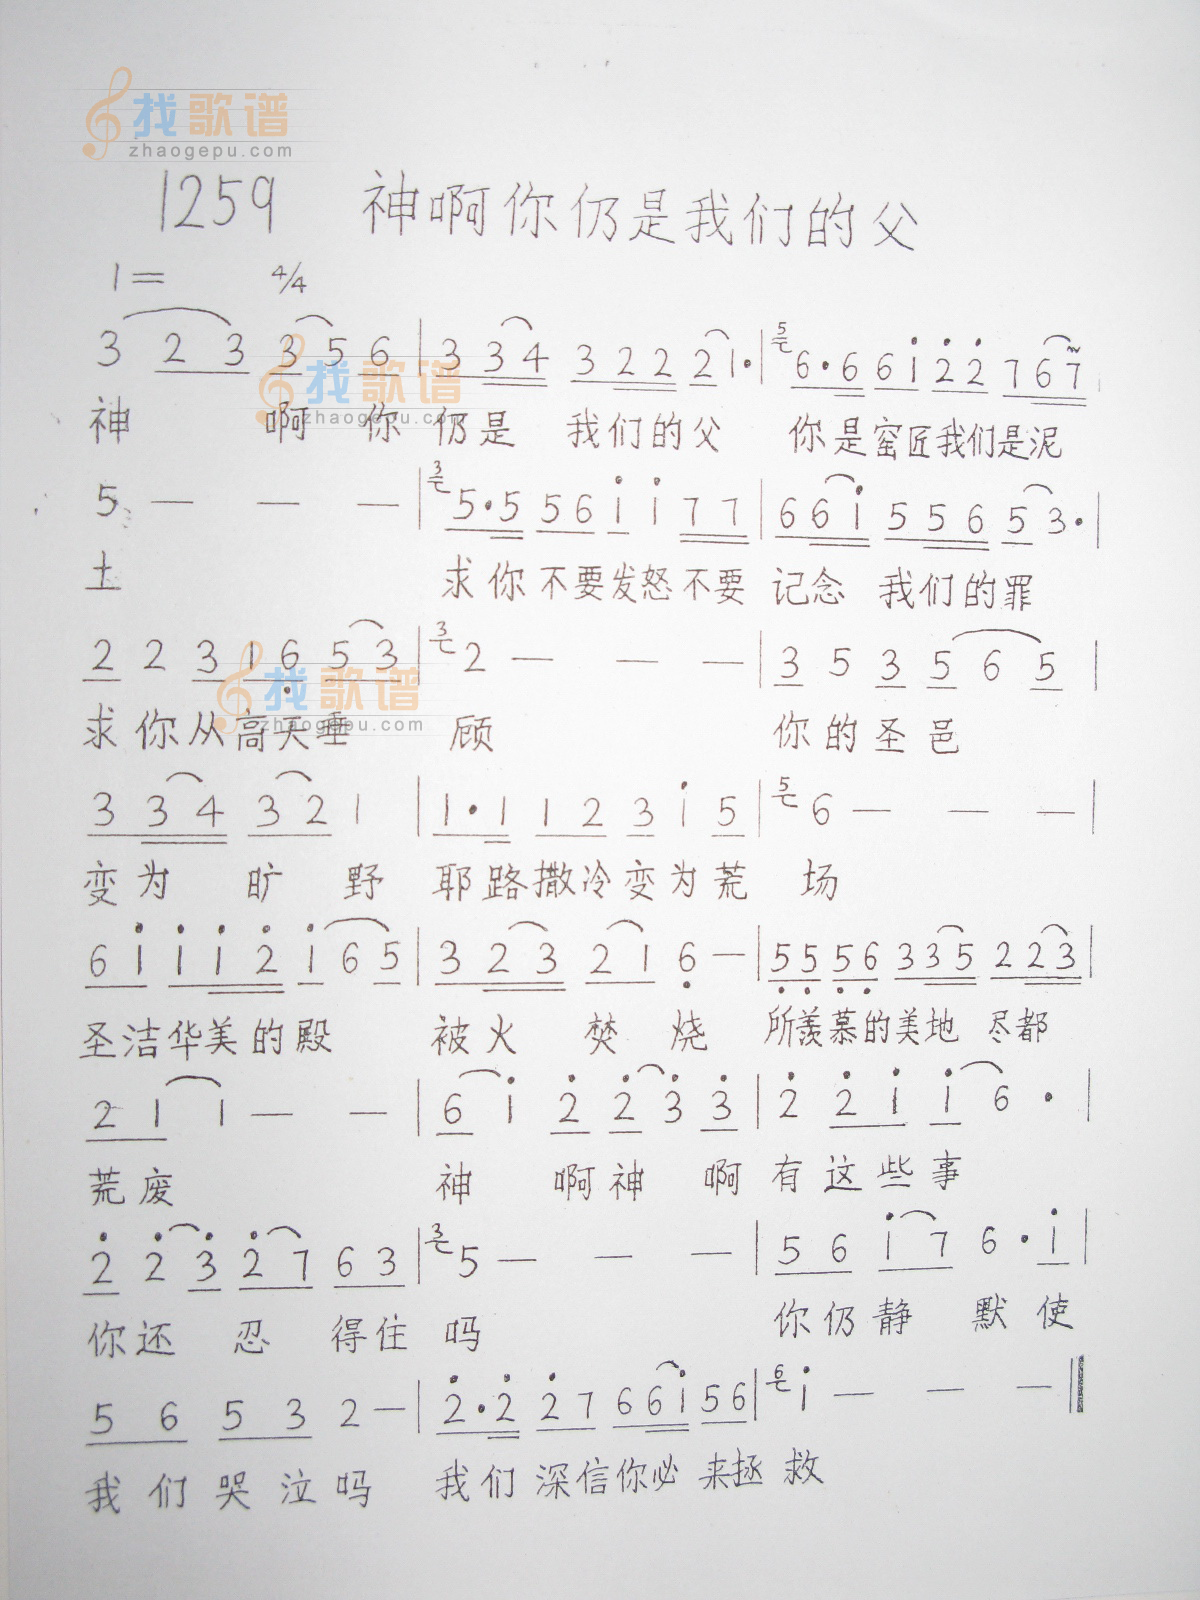 找歌谱
zhaogepu.com
1259 神啊你仍是我们的父
1= 4/4
3 2 3 3 5 6 | 3 3 4 3 2 2 2 1 · | 5 6 · 6 6 i 2 2 7 6 7 |
找歌谱
zhaogepu.com
神 啊 你 仍是 我们的父 你是窑匠我们是泥
5 — — — | 3 5 · 5 5 6 i i 7 7 | 6 6 i 5 5 6 5 3 · |
土 求你不要发怒不要 记念 我们的罪
2 2 3 1 6 5 3 | 3 2 — — — | 3 5 3 5 6 5 |
找歌谱
zhaogepu.com
求你从高天垂 顾 你的圣邑
3 3 4 3 2 1 | 1 · 1 1 2 3 i 5 | 5 6 — — — |
变为 旷 野 耶路撒冷变为荒 场
6 i i i 2 i 6 5 | 3 2 3 2 1 6 — | 5 5 5 6 3 3 5 2 2 3 |
圣洁华美的殿 被火 焚 烧 所羡慕的美地 尽都
2 1 1 — — | 6 i 2 2 3 3 | 2 2 i i 6 · |
荒废 神 啊神 啊 有这些事
2 2 3 2 7 6 3 | 3 5 — — — | 5 6 i 7 6 · i |
你还 忍 得住 吗 你仍静 默使
5 6 5 3 2 — | 2 · 2 2 7 6 6 i 5 6 | 6 i — — — ‖
我们哭泣吗 我们深信你必来拯救